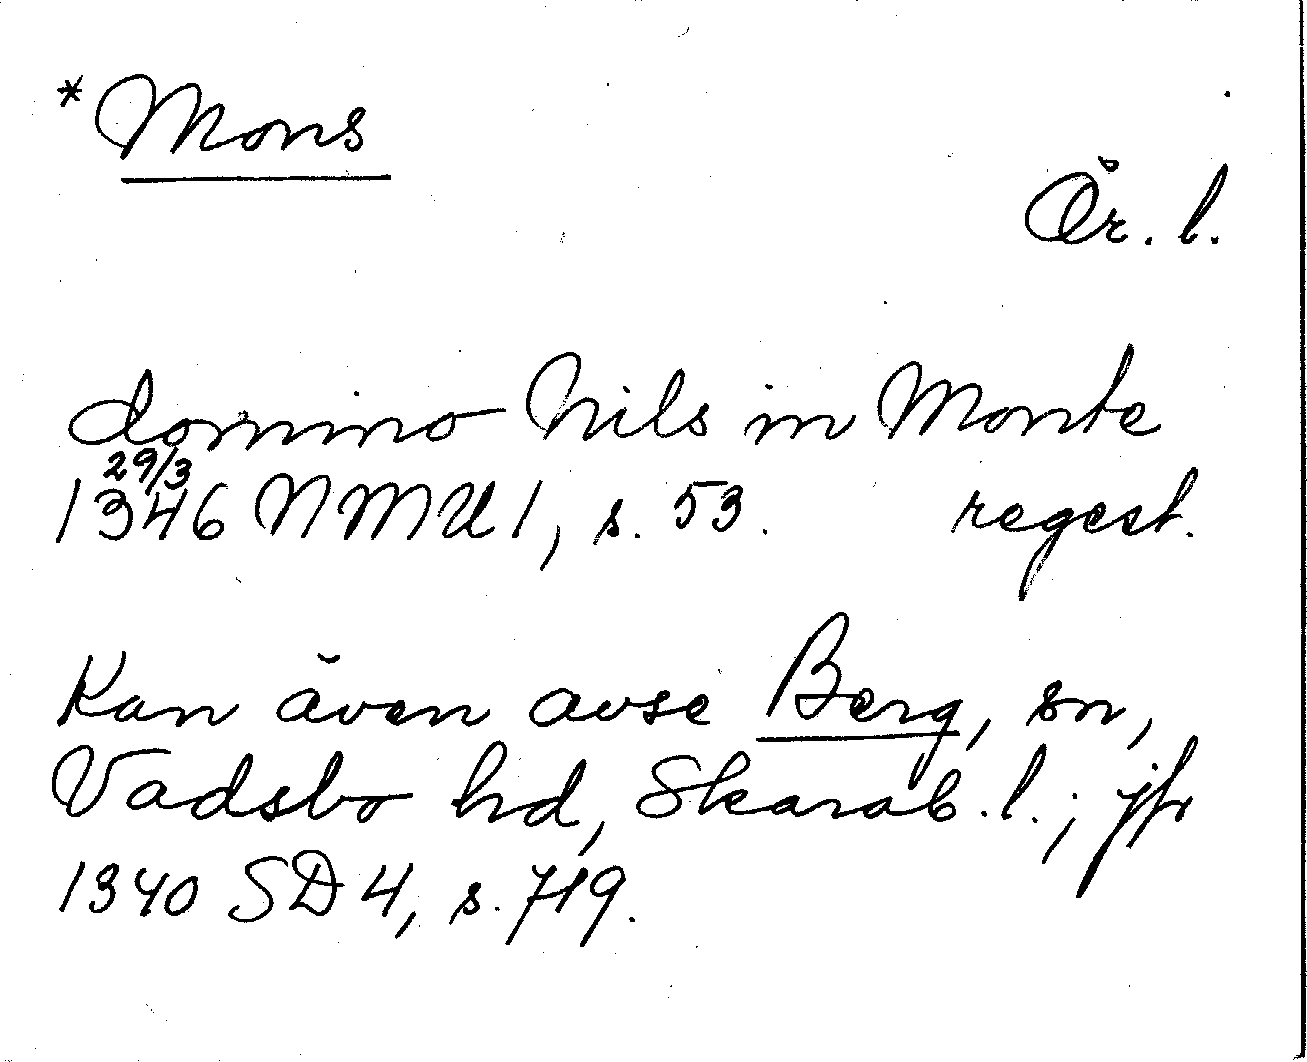 *Mons
Ör. l.
domino Nils in Monte
29/3
1346 NMU 1, s. 53. regest.
Kan även avse Berg, sn,
Vadsbo hd, Skarab. l.; jfr
1340 SD 4, s. 719.